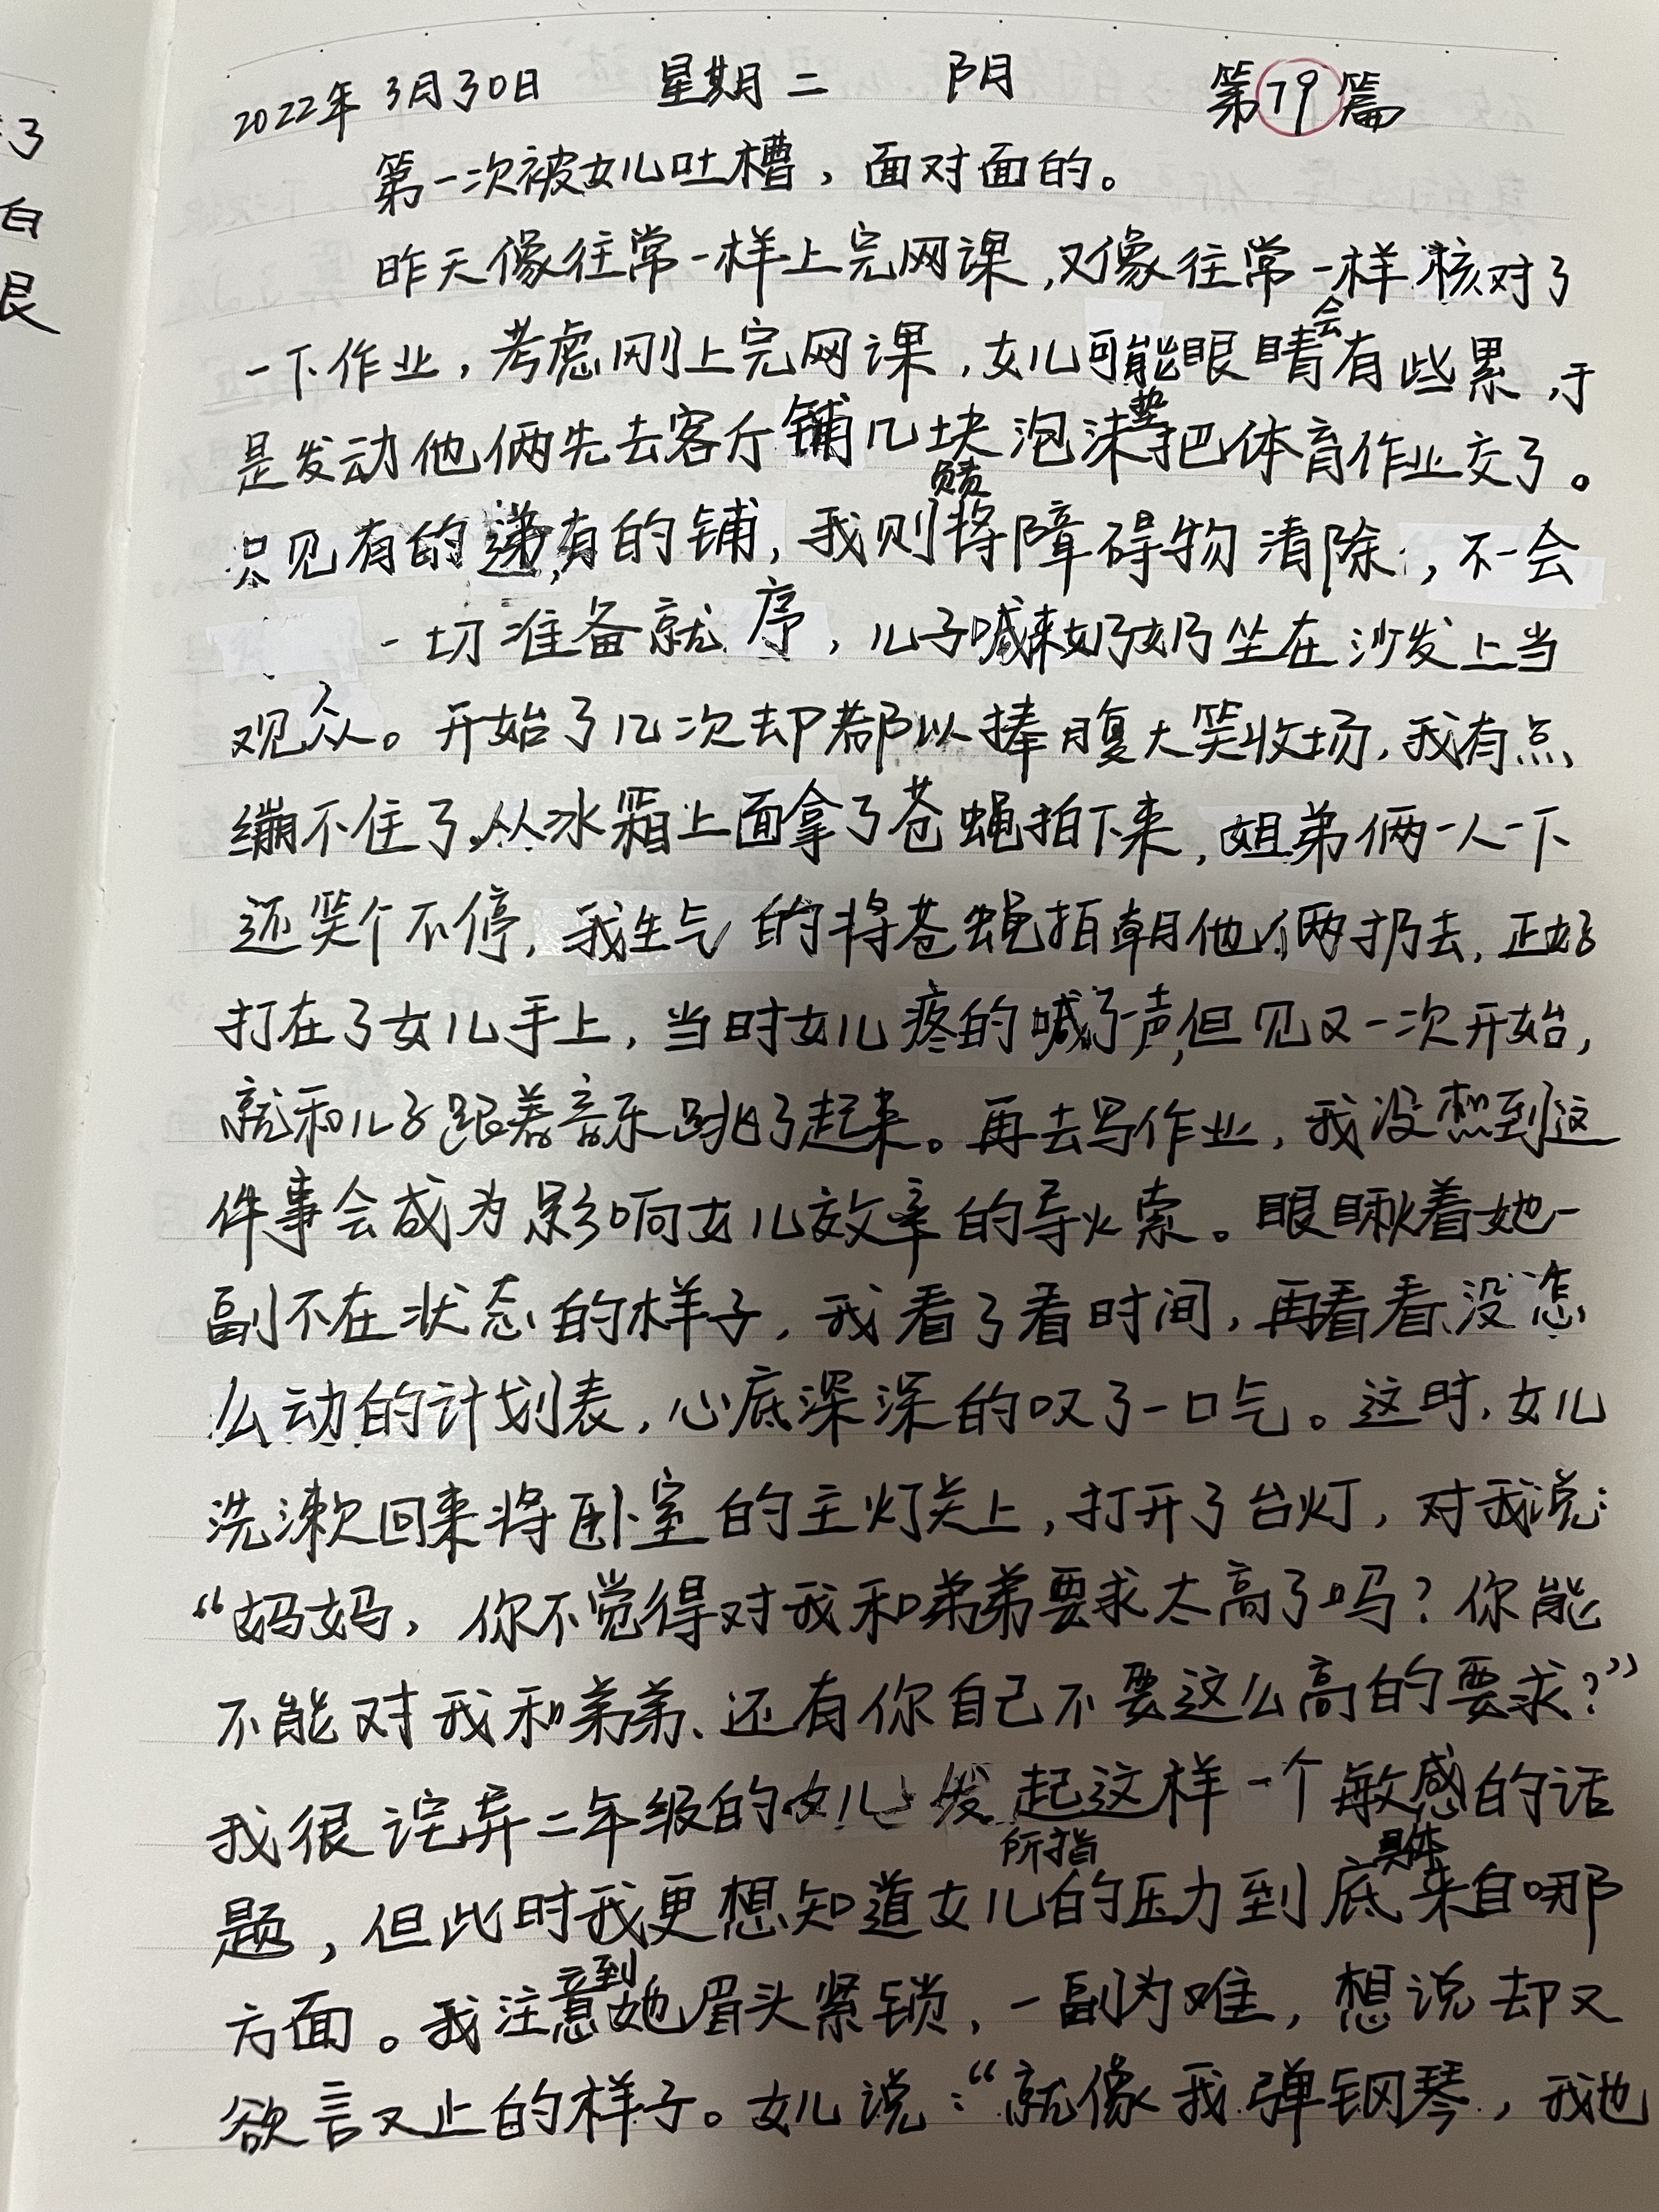 2022年 3月30日 星期二 阴 第79篇
第一次被女儿吐槽，面对面的。
昨天像往常一样上完网课，又像往常一样核对了
一下作业，考虑刚上完网课，女儿可能眼睛会有些累，于
是发动他俩先去客厅铺几块泡沫垫把体育作业交了。
只见有的递，有的铺，我则负责将障碍物清除，不一会
一切准备就序，儿子喊来奶奶坐在沙发上当
观众。开始了几次却都以捧腹大笑收场，我有点
绷不住了，从冰箱上面拿了苍蝇拍下来，姐弟俩一人一下
还笑个不停，我生气的将苍蝇拍朝他俩扔去，正好
打在了女儿手上，当时女儿疼的喊了声，但见又一次开始，
就和儿子跟着音乐跳了起来。再去写作业，我没想到这
件事会成为影响女儿效率的导火索。眼瞅着她一
副不在状态的样子，我看了看时间，再看看没怎
么动的计划表，心底深深的叹了一口气。这时，女儿
洗漱回来将卧室的主灯关上，打开了台灯，对我说：
“妈妈，你不觉得对我和弟弟要求太高了吗？你能
不能对我和弟弟、还有你自己不要这么高的要求？”
我很诧异二年级的女儿发起这样一个敏感的话
题，但此时我更想知道女儿所指的压力到底具体来自哪
方面。我注意到她眉头紧锁，一副为难，想说却又
欲言又止的样子。女儿说：“就像我弹钢琴，我也
了
白
艮